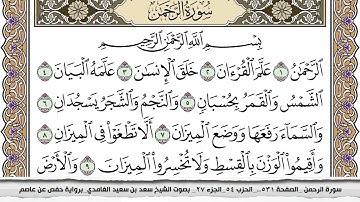 سُورَةُ الرَّحْمَٰن
بِسْمِ اللَّهِ الرَّحْمَٰنِ الرَّحِيمِ
الرَّحْمَٰنُ ١ عَلَّمَ الْقُرْءَانَ ٢ خَلَقَ الْإِنسَٰنَ ٣ عَلَّمَهُ الْبَيَانَ ٤
الشَّمْسُ وَالْقَمَرُ بِحُسْبَانٍ ٥ وَالنَّجْمُ وَالشَّجَرُ يَسْجُدَانِ ٦
وَالسَّمَاءَ رَفَعَهَا وَوَضَعَ الْمِيزَانَ ٧ أَلَّا تَطْغَوْا فِي الْمِيزَانِ ٨
وَأَقِيمُوا الْوَزْنَ بِالْقِسْطِ وَلَا تُخْسِرُوا الْمِيزَانَ ٩ وَالْأَرْضَ
سورة الرحمن _الصفحة ٥٣١_ الحزب ٥٤_ الجزء ٢٧_ بصوت الشيخ سعد بن سعيد الغامدي_ برواية حفص عن عاصم